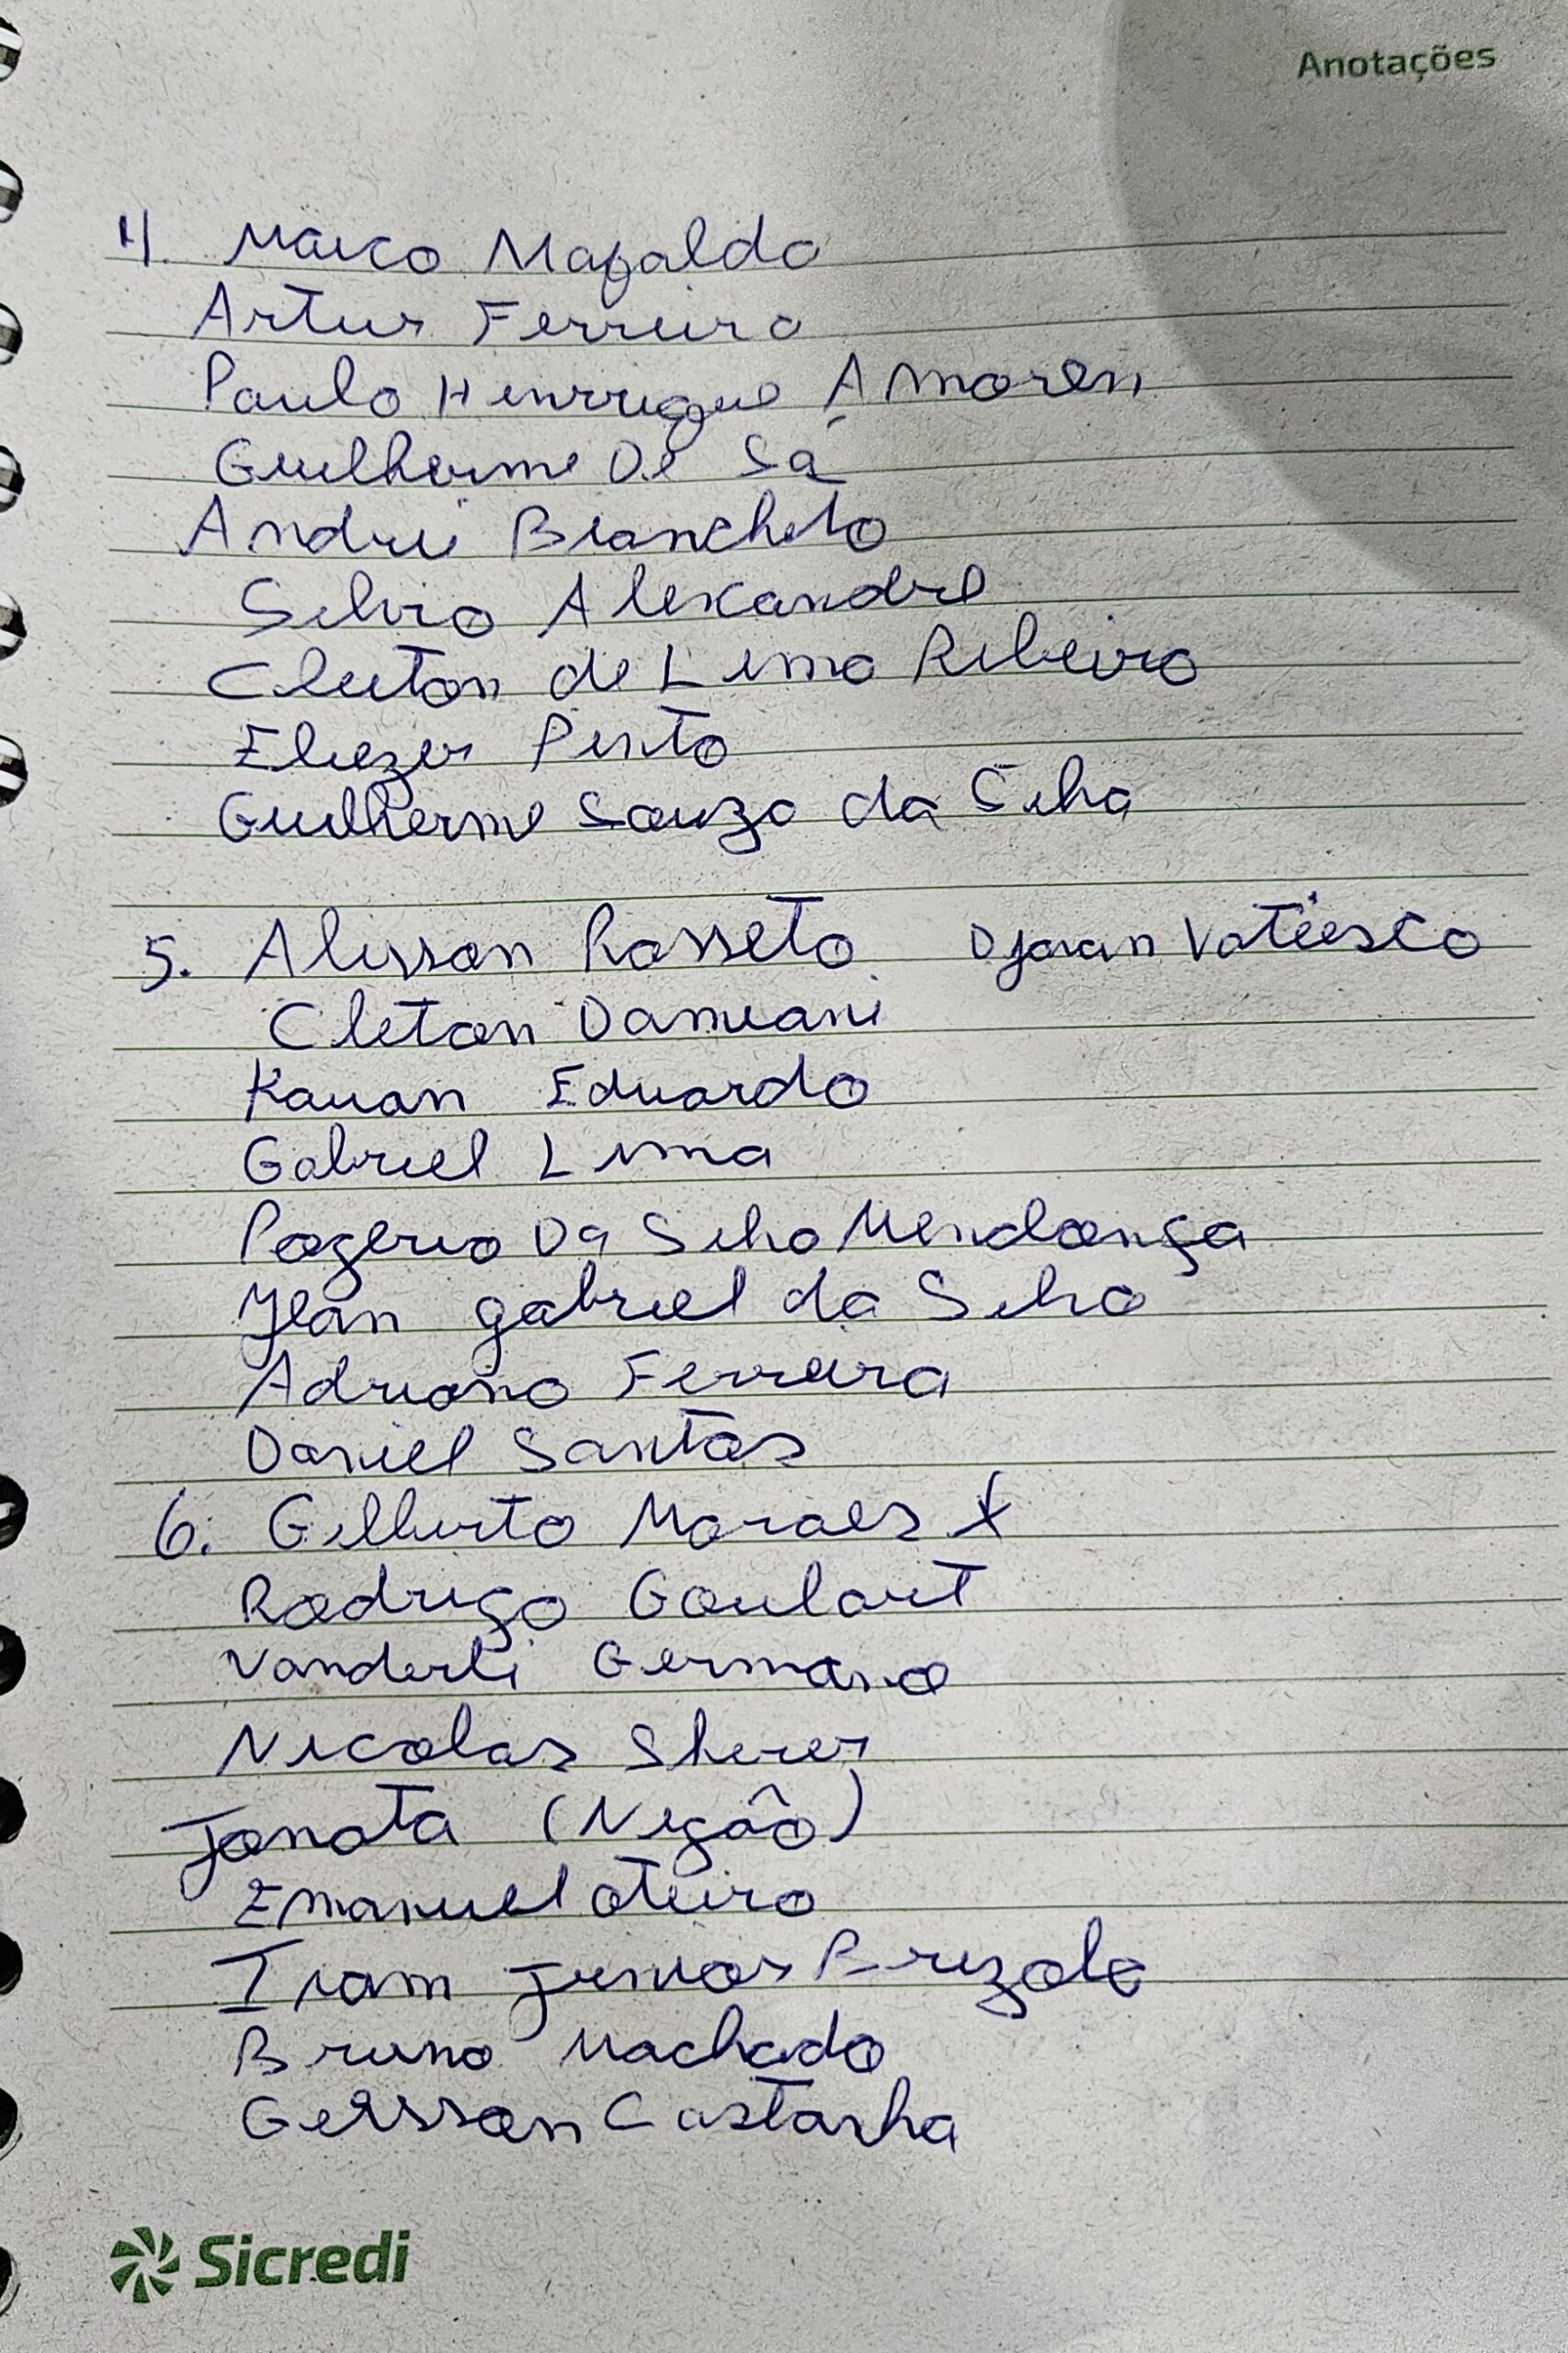 Anotações
4. Marco Mafaldo
Artur Ferreira
Paulo Henrrique Amoren
Guilherme De Sá
Andrei Biancheto
Silvio Alexandre
Cleiton de Lima Ribeiro
Eliezer Pinto
Guilherme Souza da Silva
5. Alisson Rosseto. Djovan Vatiesco
Cleton Damiani
Kauan Eduardo
Gabriel Lima
Rogerio Da Silva Mendonça
Jean gabriel da Silva
Adriano Ferreira
Daniel Santos
6. Gilberto Moraes X
Rodrigo Goulart
Vanderli Germano
Nicolas Sherer
Jonata (Negão)
Emanuel oteiro
Iram Junior Brizola
Bruno Machado
Geisson Castanha
Sicredi